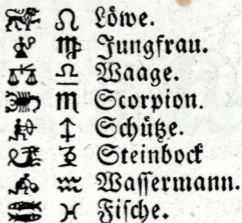 ♌ Löwe.
♍ Jungfrau.
♎ Waage.
♏ Scorpion.
♐ Schütze.
♑ Steinbock
♒ Wassermann.
♓ Fische.